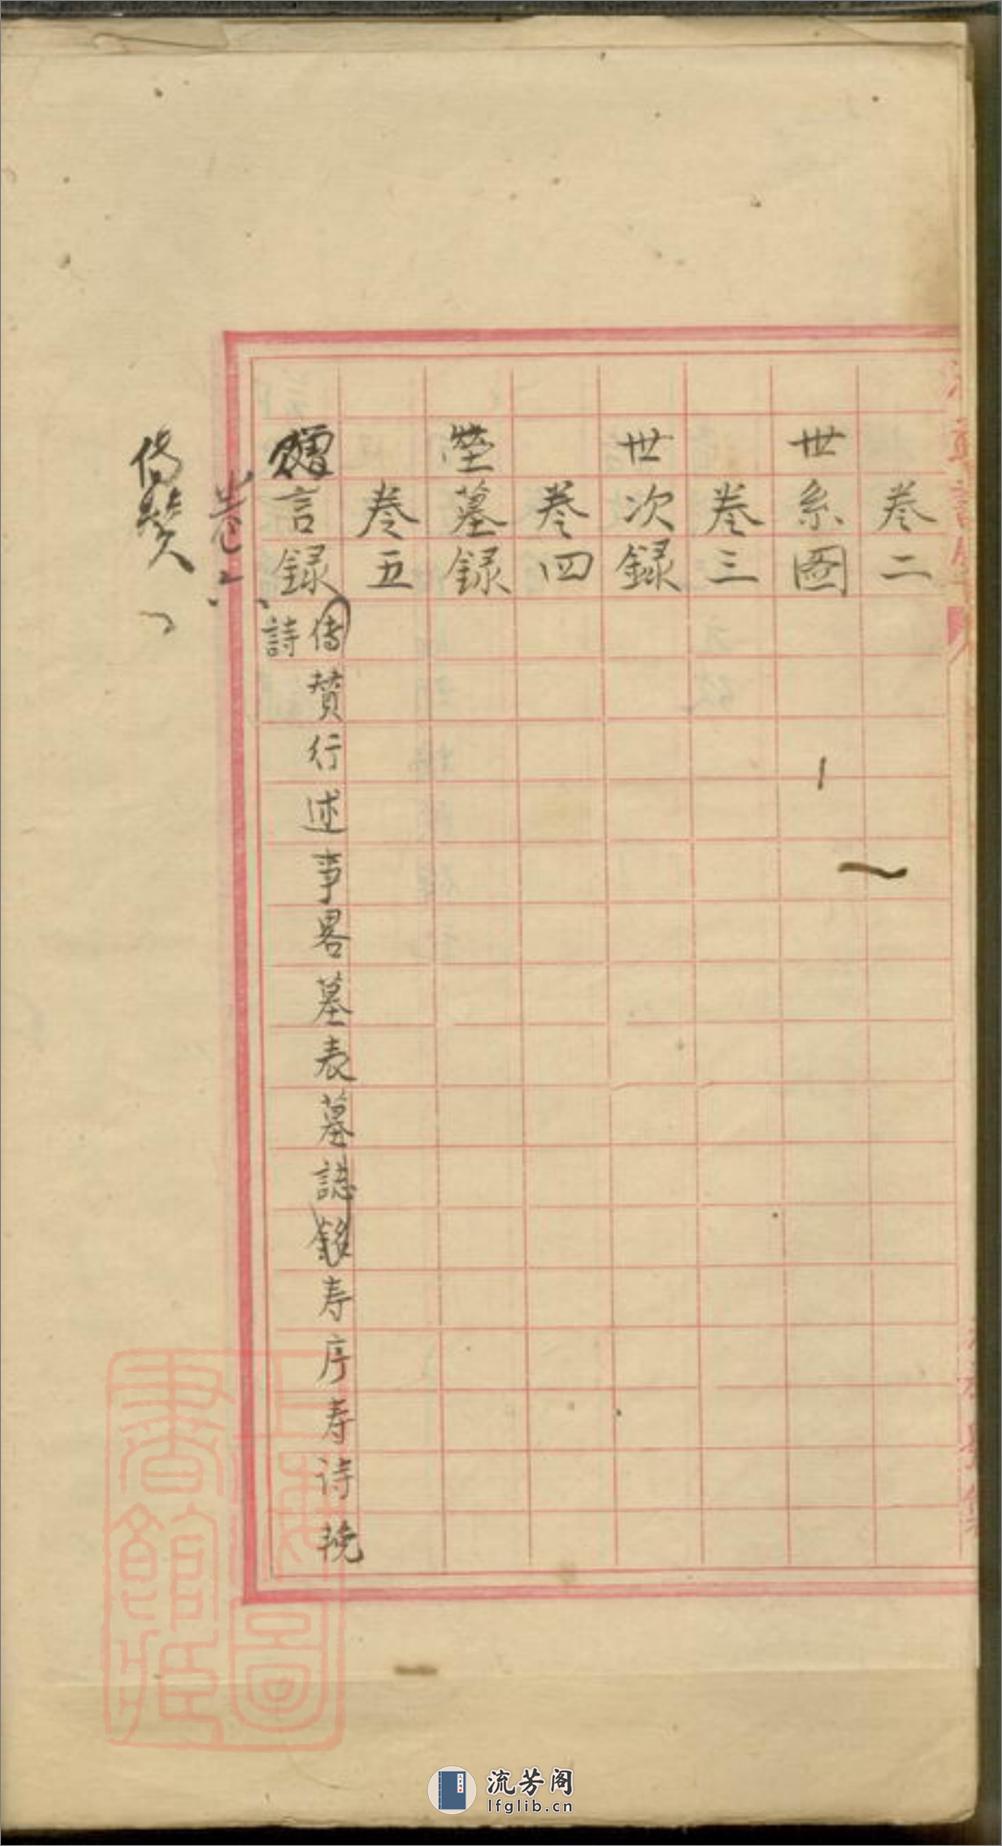 卷二
世系圖
卷三
世次録
卷四
塋墓録
卷五
贈言録
傳贊行述事畧墓表墓誌銘寿序寿诗挽
詩
卷六
傳贊
上海圖
書館藏
流芳阁
lfglib.cn